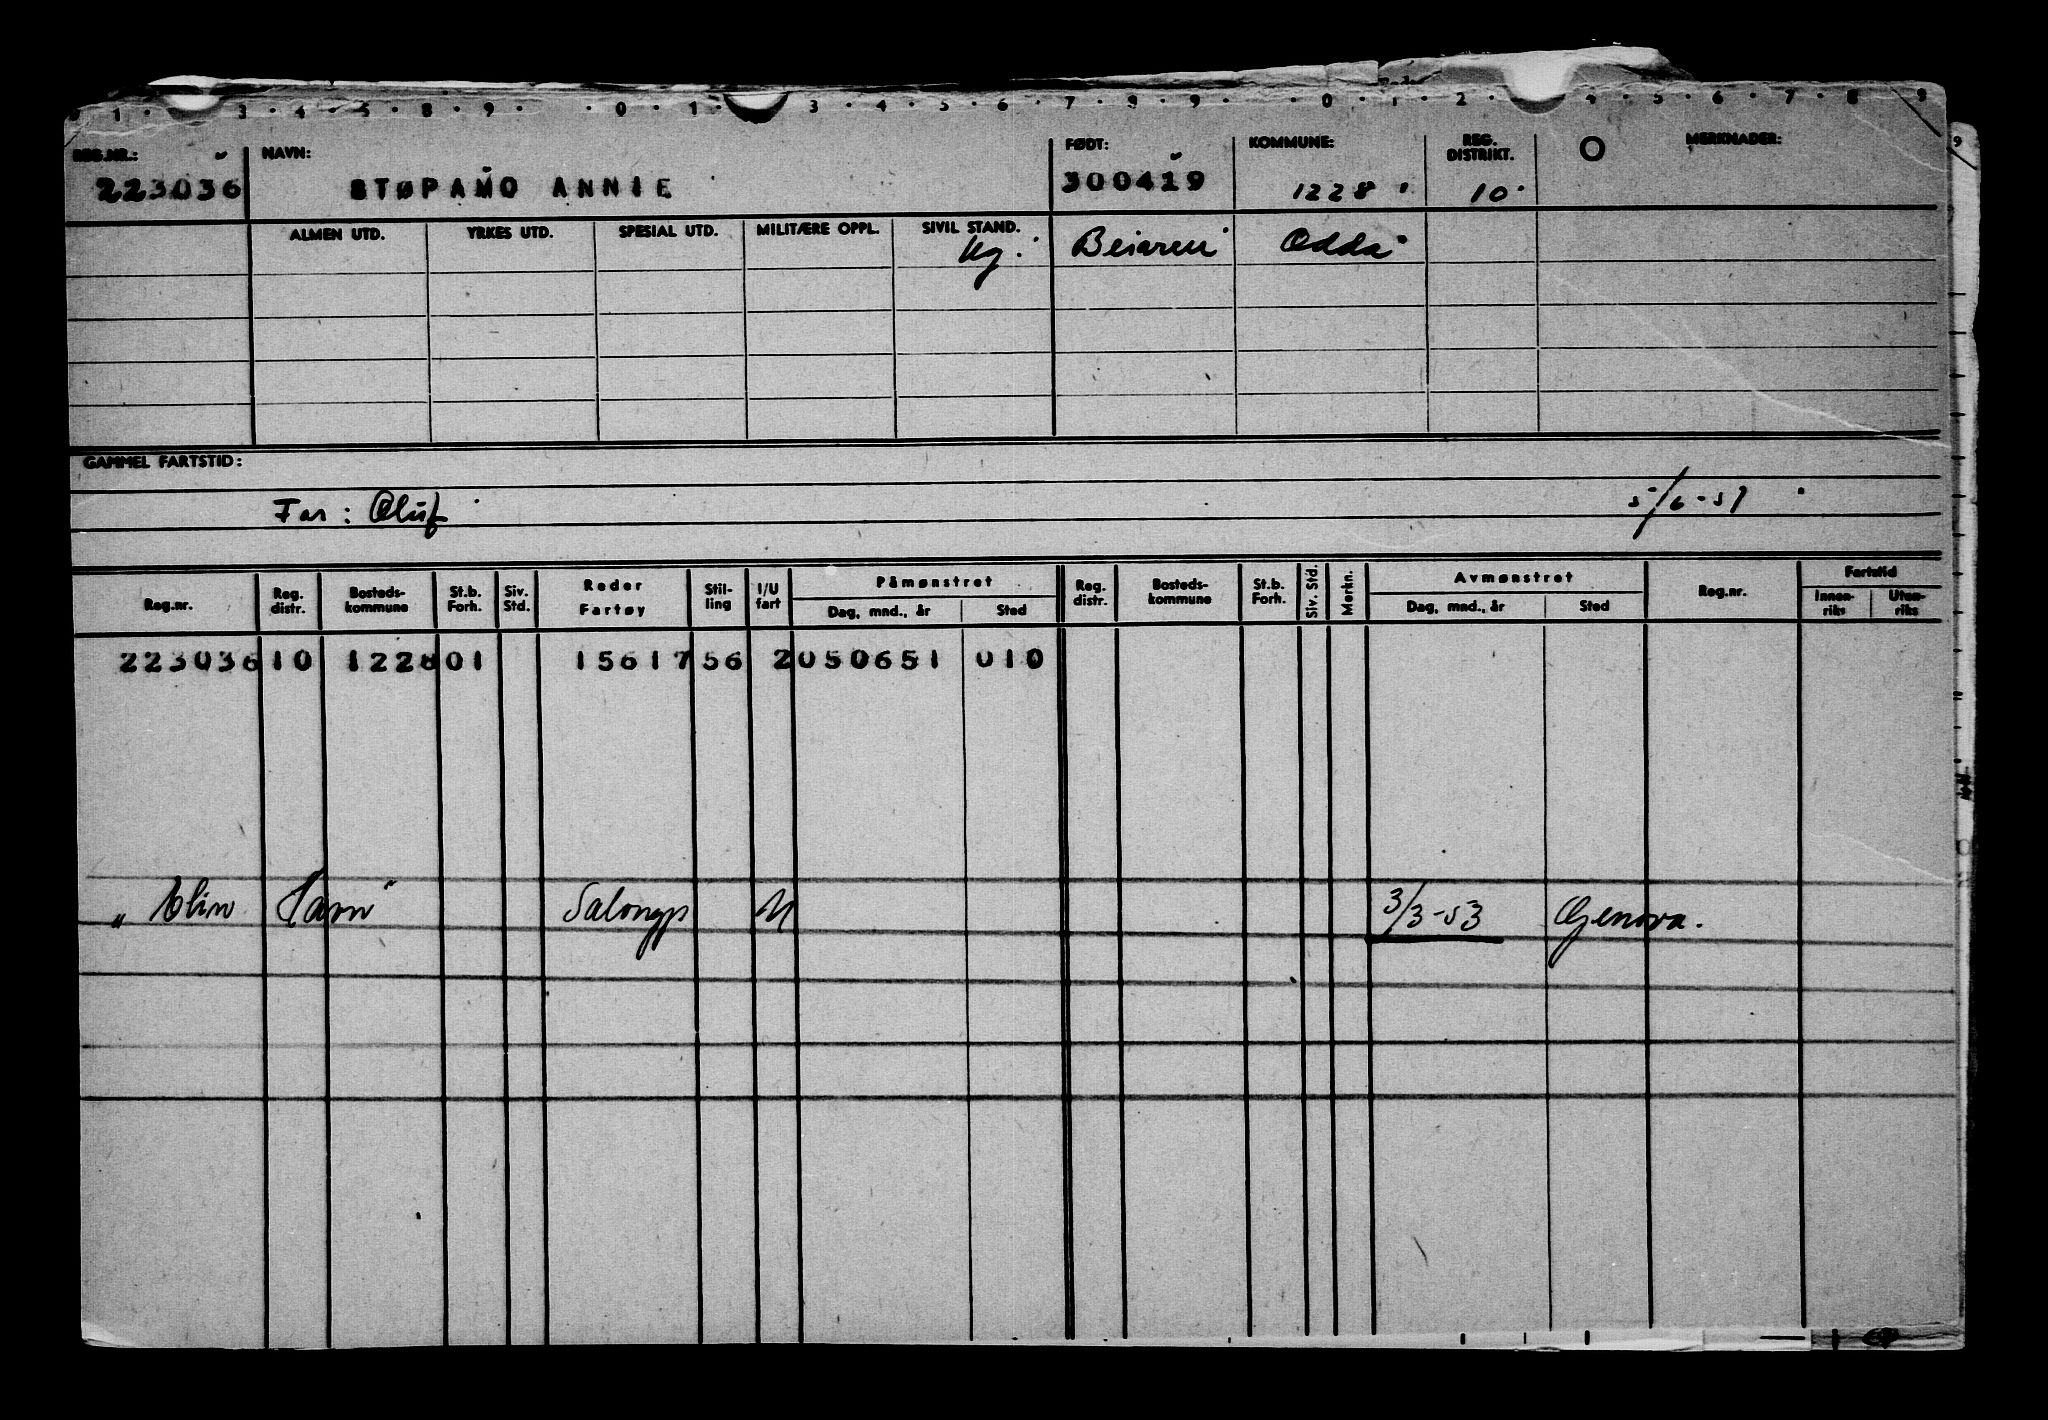 1 · 3 · 4 · 5 · 8 · 9 · · 0 · 1 · 3 · 4 · 5 · 6 · 7 · 8 · 9 · · 0 · 1 · 2 · 4 · 5 · 6 · 7 · 8 9
REG.NR.: NAVN: FØDT: KOMMUNE: REG. DISTRIKT. O MERKNADER:
223036 STØPAMO ANNIE 300419 1228 10
ALMEN UTD. YRKES UTD. SPESIAL UTD. MILITÆRE OPPL. SIVIL STAND.
Ug. Beiaren Odda
GAMMEL FARTSTID:
Far: Oluf 5/6-51
Reg.nr. Reg. distr. Bosteds-kommune St.b. Forh. Siv. Std. Reder Fartøy Stil-ling I/U fart Påmønstret Dag, mnd., år Sted Reg. distr. Bosteds-kommune St.b. Forh. Siv. Std. Merkn. Avmønstret Dag, mnd., år Sted Reg.nr. Fartstid Innen-riks Uten-riks
223036 10 1228 01 15617 56 2 050651 010
" Elin Horn" Salongp U 3/3-53 Genova.